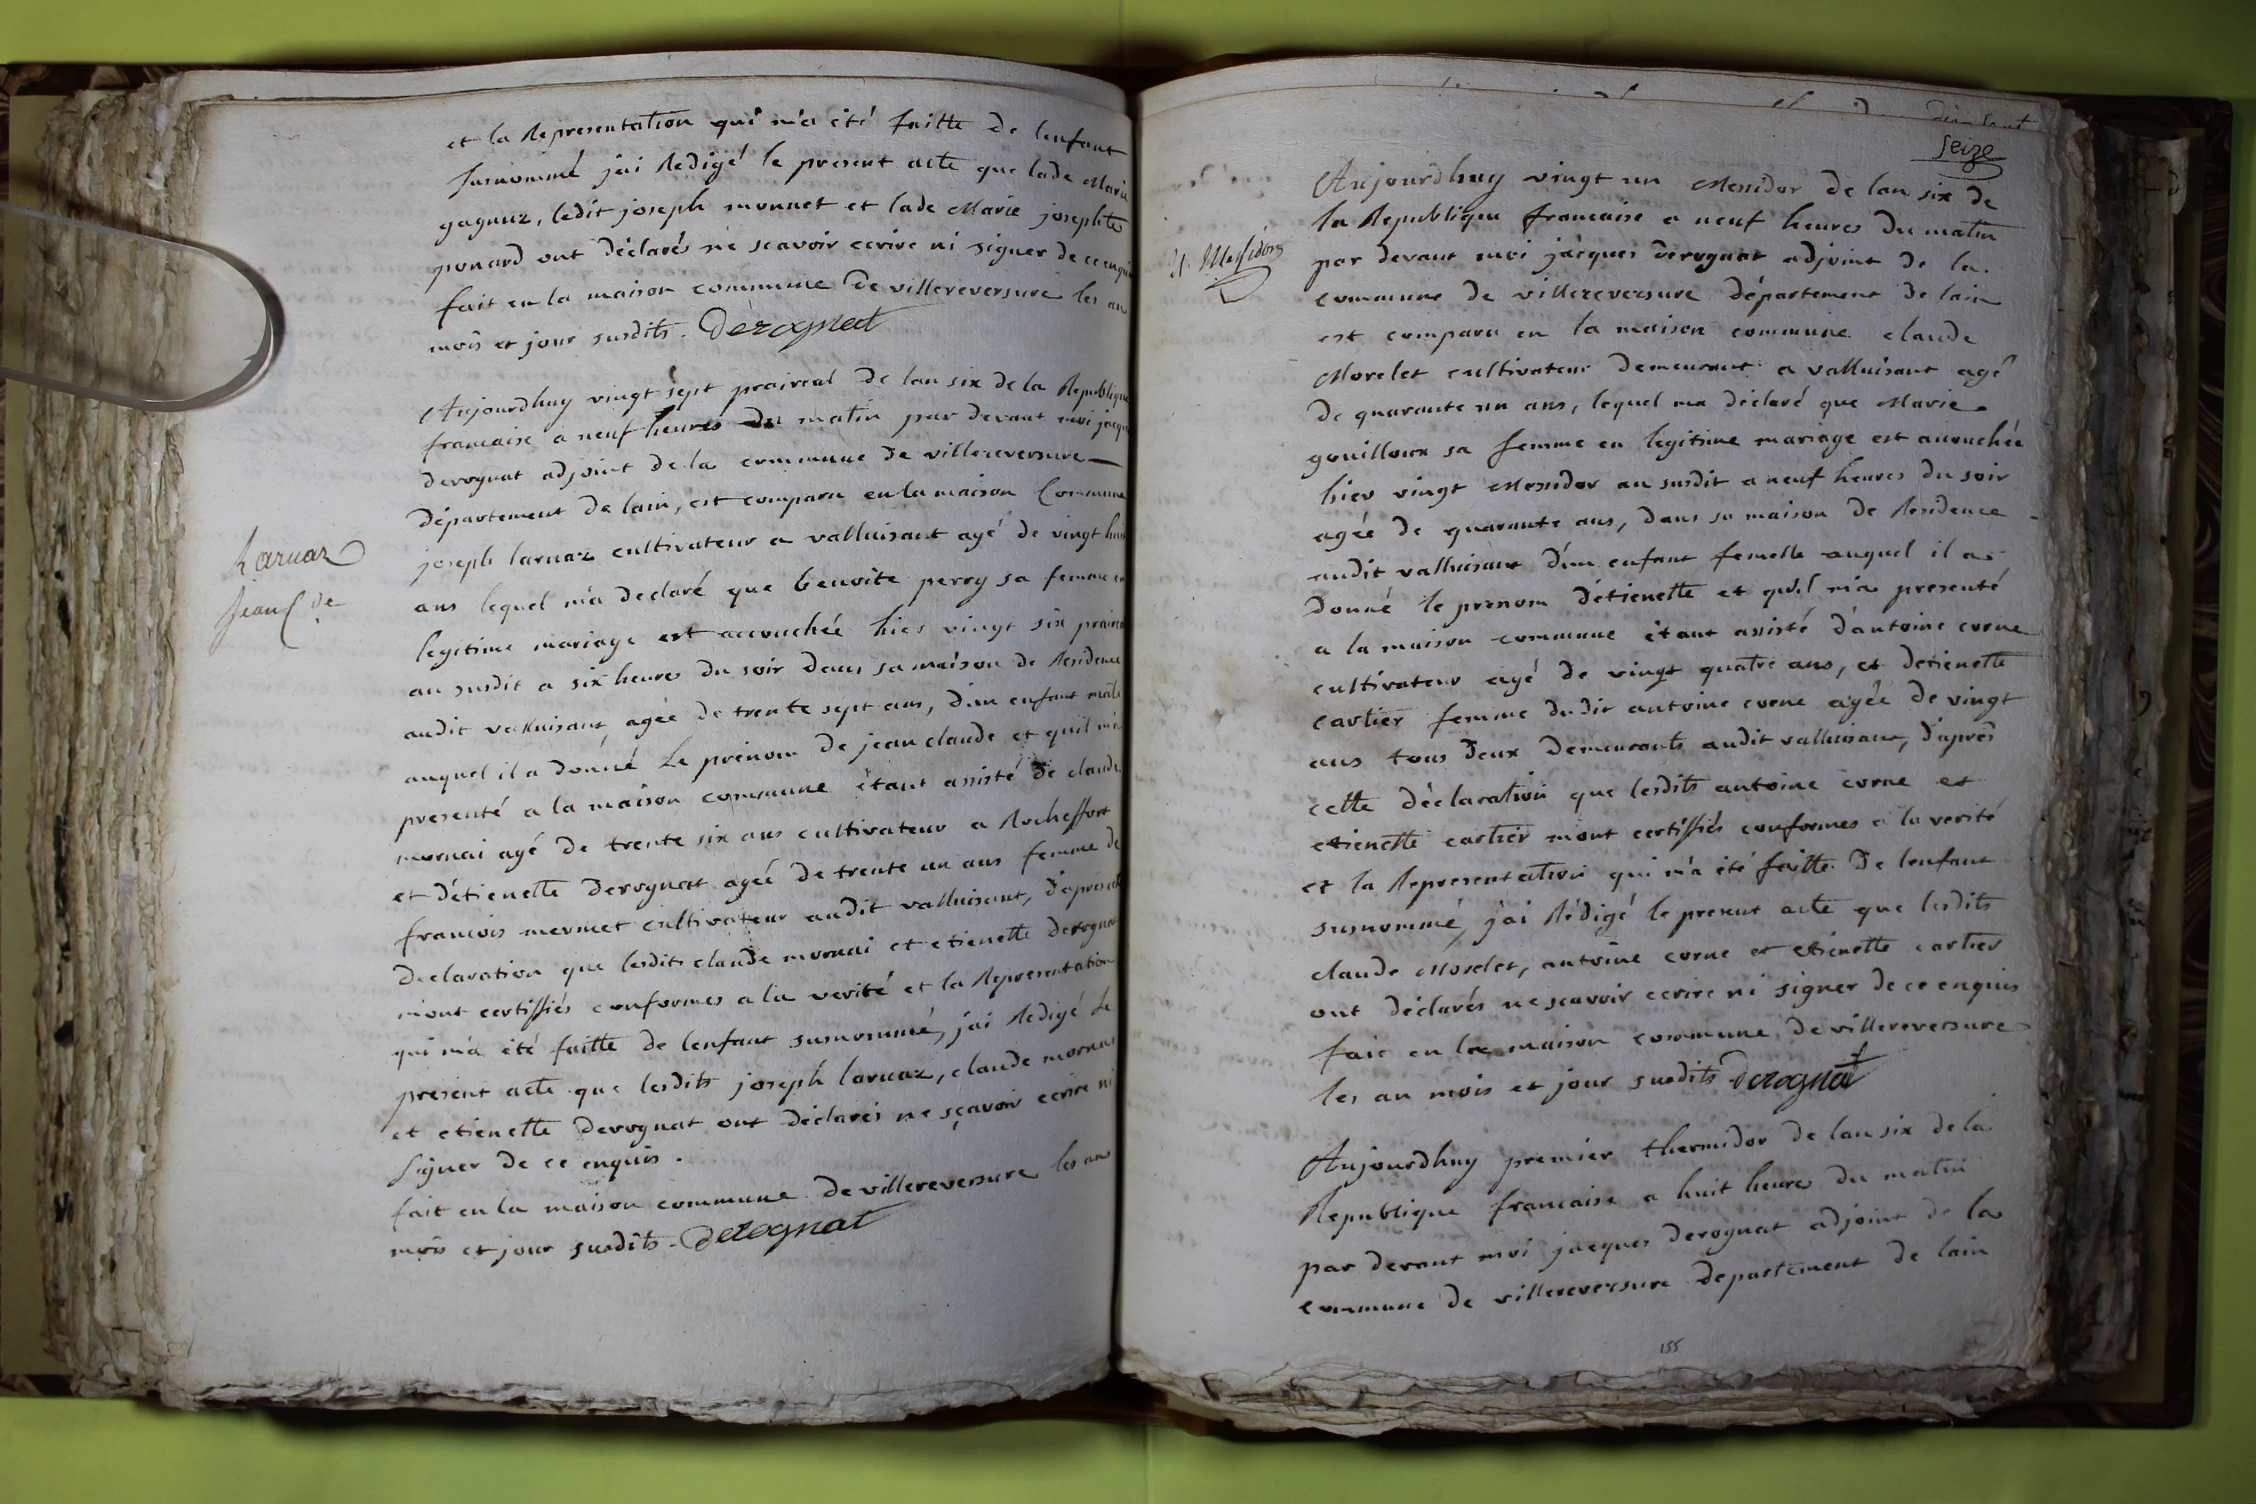 et la Representation qui m'a été faitte de lenfant
susnommé j'ai Redigé le present acte que lade Marie
gagnuz, ledit joseph monnet et lade Marie josephte
ponard ont déclarés ne scavoir ecrire ni signer de ce enquis
fait en la maison commune de villereversure les an
mois et jour susdits. Derognat
Laruaz
Jean C de
Aujourdhuy vingt sept prairial de lan six de la Republique
francaise a neuf heures du matin par devant moi jacques
derognat adjoint de la commune de villereversure
département de lain, est comparu en la maison Commune
joseph laruaz cultivateur a valluisant agé de vingt huit
ans lequel m'a declaré que benoite perry sa femme en
legitime mariage est accouchée hier vingt six prairial
an susdit a six heures du soir dans sa maison de Residence
audit valluisant, agée de trente sept ans, d'un enfant mâle
auquel il a donné Le prénom de jean claude et quil m'a
presenté a la maison commune étant assisté de claude
mornai agé de trente six ans cultivateur a Rocheffort
et d'étienette derognat agée de trente un ans femme de
francois mermet cultivateur audit valluisant, d'après cette
declaration que lesdits claude mornai et etienette derognat
m'ont certiffiés conformes a la verité et la Representation
qui m'a été faitte de lenfant susnommé, j'ai Redigé Le
présent acte que lesdits joseph laruaz, claude mornai
et etienette derognat ont déclarés ne sçavoir ecrire ni
signer de ce enquis.
fait en la maison commune de villereversure les an
mois et jour susdits. Derognat
seize
Messidor
Aujourdhuy vingt un Messidor de lan six de
la Republique francaise a neuf heures du matin
par devant moi jacques derognat adjoint de la
commune de villereversure département de lain
est comparu en la maison commune claude
Morelet cultivateur demeurant a valluisant agé
de quarante un ans, lequel ma déclaré que Marie
gouilloux sa femme en legitime mariage est accouchée
hier vingt Messidor an susdit a neuf heures du soir
agée de quarante ans, dans sa maison de Residence
audit valluisant d'un enfant femelle auquel il a
donné le prenom d'étienette et qu'il m'a presenté
a la maison commune étant assisté d'antoine corne
cultivateur agé de vingt quatre ans, et détienette
cartier femme dudit antoine corne agée de vingt
ans tous deux demeurants audit valluisant, d'après
cette déclaration que lesdits antoine corne et
etienette cartier m'ont certiffiés conformes a la verité
et la Representation qui m'a été faitte de lenfant
susnommé, j'ai Rédigé le present acte que lesdits
claude Morelet, antoine corne et etienette cartier
ont déclarés ne scavoir ecrire ni signer de ce enquis
fait en la maison commune de villereversure
les an mois et jour susdits Derognat
Aujourdhuy premier thermidor de lan six de la
Republique francaise a huit heures du matin
par devant moi jacques derognat adjoint de la
commune de villereversure departement de lain
155